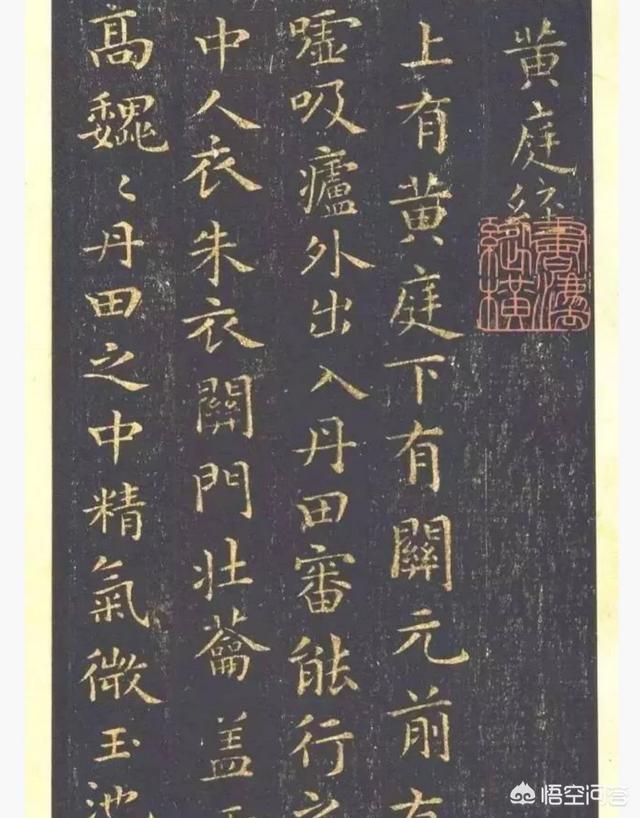 黄庭經
上有黄庭下有關元前有
嘘吸廬外出入丹田審能行之
中人衣朱衣關門壯蘥盖
高巍〻丹田之中精氣微玉池
悟空问答